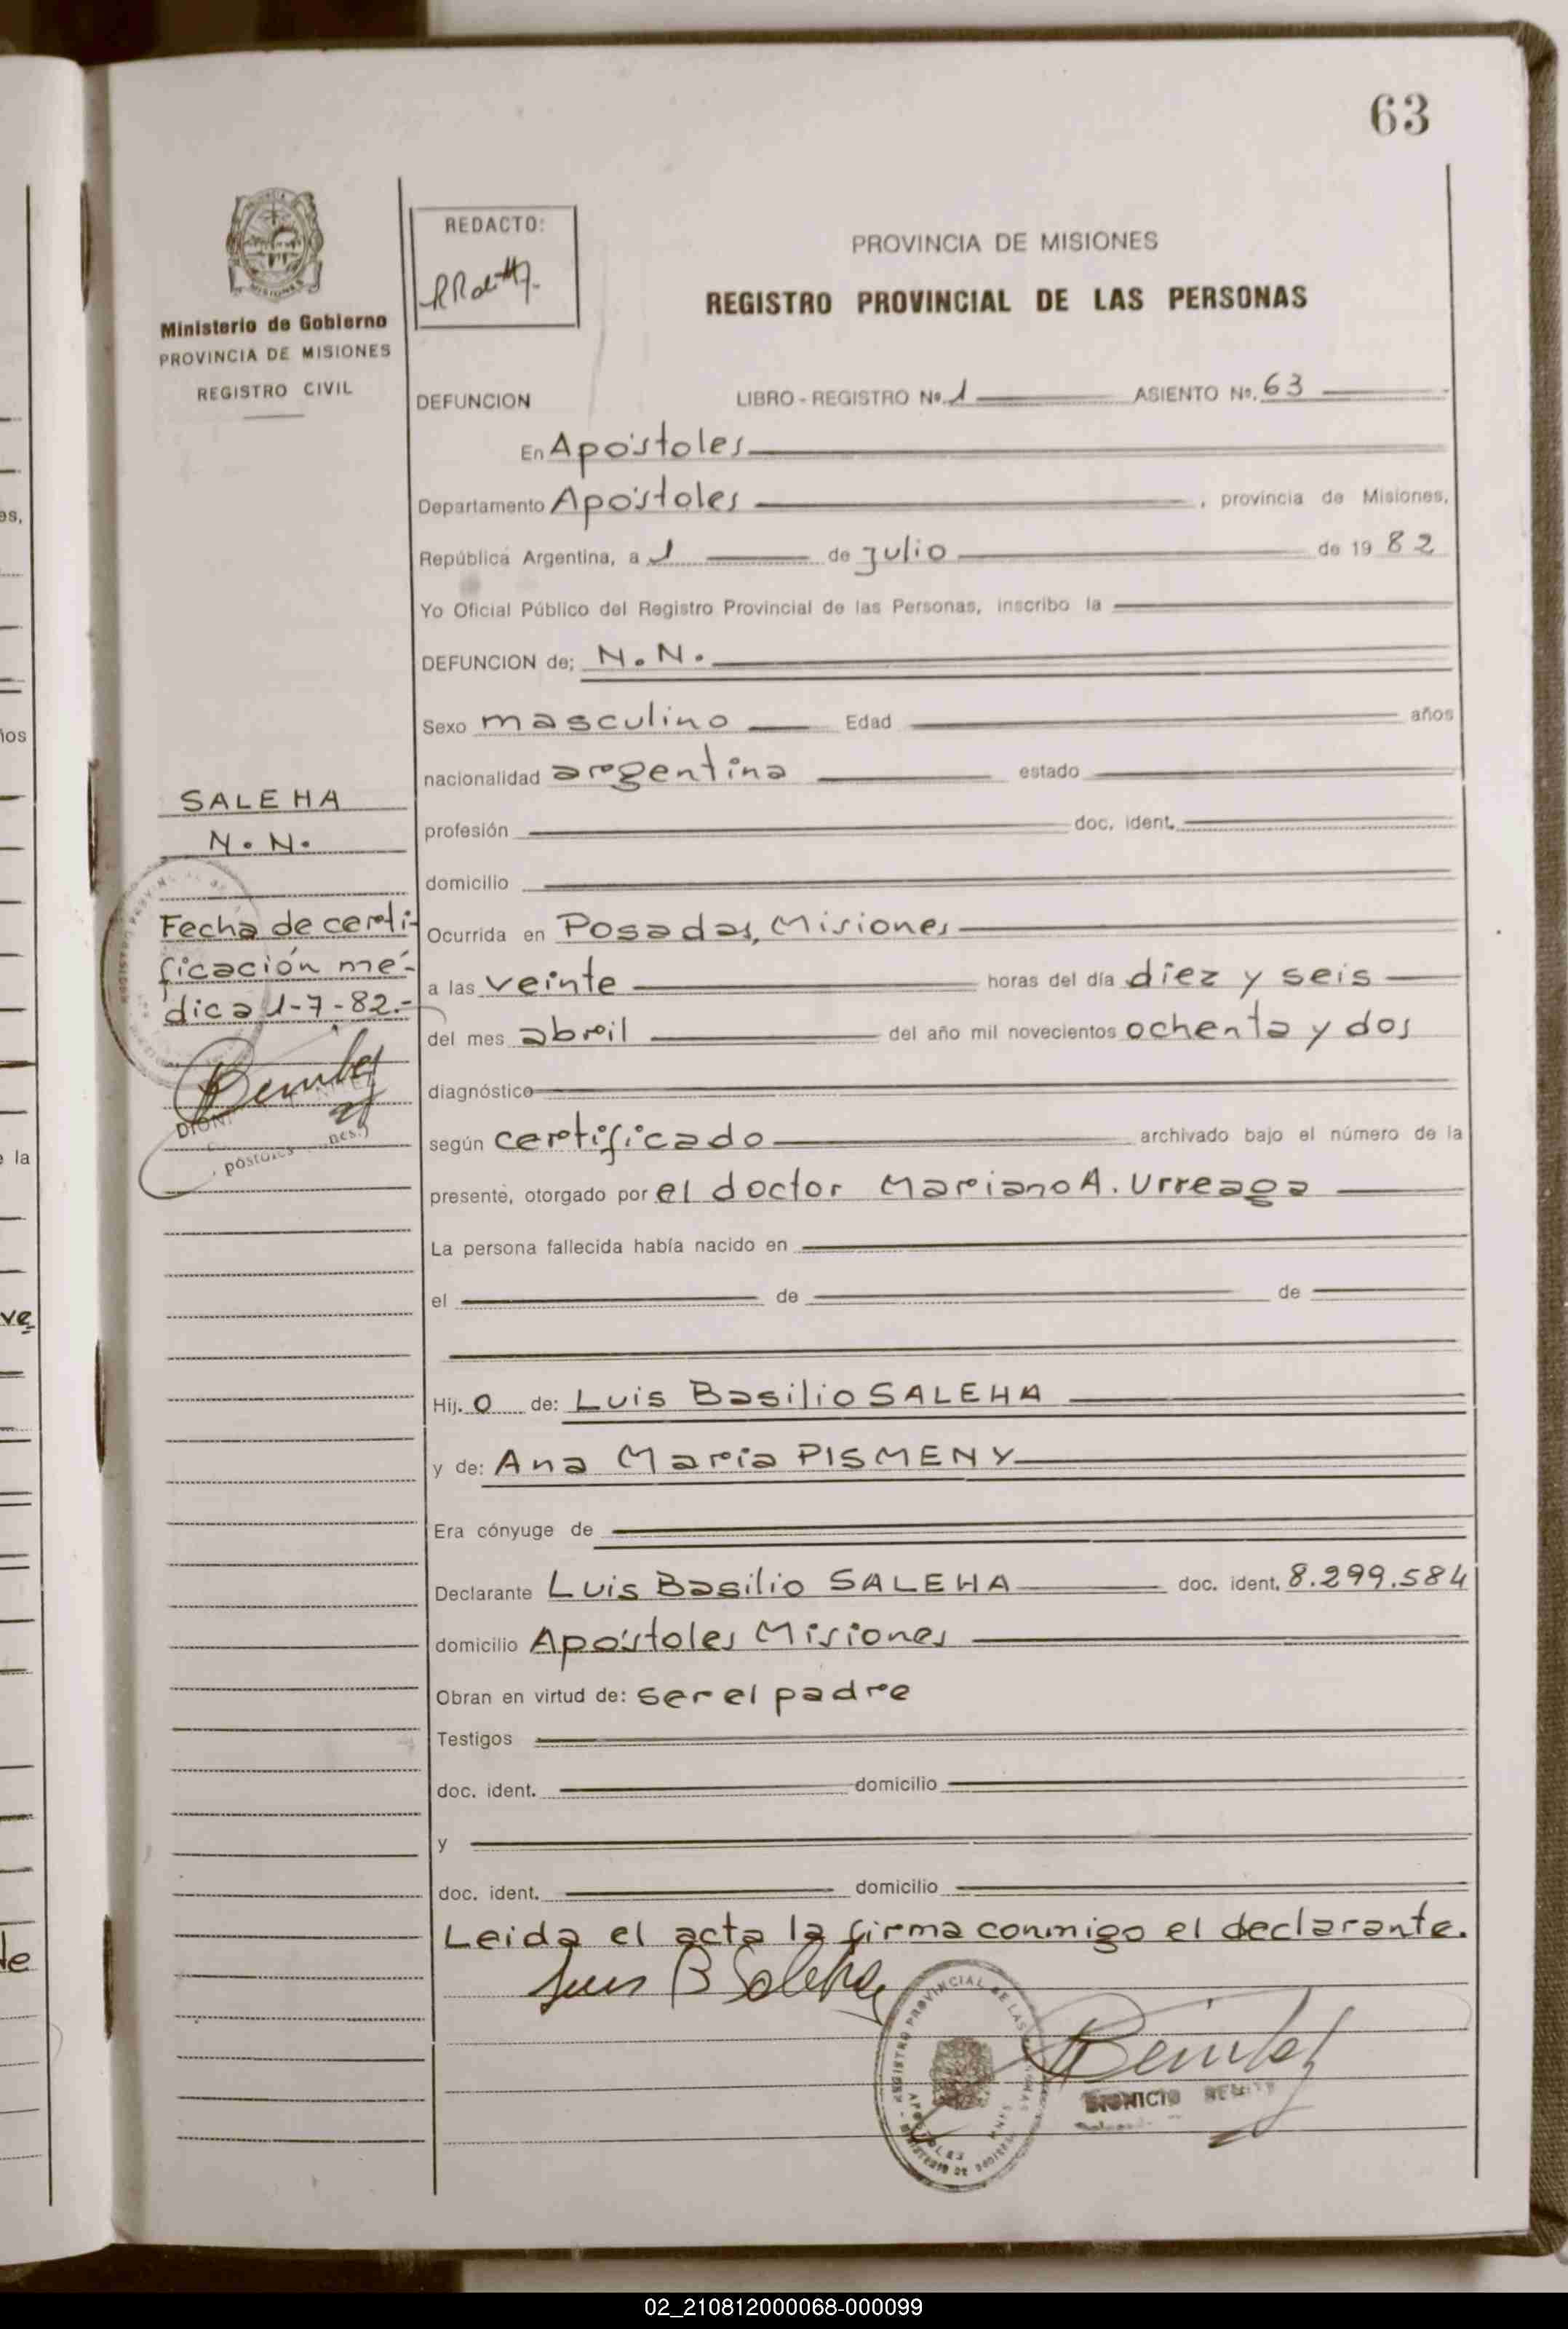 63
REDACTO:
Ministerio de Gobierno
PROVINCIA DE MISIONES
REGISTRO CIVIL
PROVINCIA DE MISIONES
REGISTRO PROVINCIAL DE LAS PERSONAS
DEFUNCION LIBRO - REGISTRO Nº. 1 ASIENTO Nº. 63
En Apóstoles
Departamento Apóstoles, provincia de Misiones,
República Argentina, a 1 de julio de 19 82
Yo Oficial Público del Registro Provincial de las Personas, inscribo la
DEFUNCION de; N.N.
Sexo masculino Edad años
nacionalidad argentina estado
profesión doc. ident.
domicilio
Ocurrida en Posadas, Misiones
a las veinte horas del día diez y seis
del mes abril del año mil novecientos ochenta y dos
diagnóstico
según certificado archivado bajo el número de la
presente, otorgado por el doctor Mariano A. Urreaga
La persona fallecida había nacido en
el de de
Hij. o de: Luis Basilio SALEHA
y de: Ana María PISMENY
Era cónyuge de
Declarante Luis Basilio SALEHA doc. ident. 8.299.584
domicilio Apóstoles Misiones
Obran en virtud de: ser el padre
Testigos
doc. ident. domicilio
y
doc. ident. domicilio
Leida el acta la firma conmigo el declarante.
Luis B Saleha
DIONICIO
SALEHA
N.N.
Fecha de certi-
ficación mé-
dica 1-7-82.-
Benitez
os,
ios
la
ve
le
02_210812000068-000099